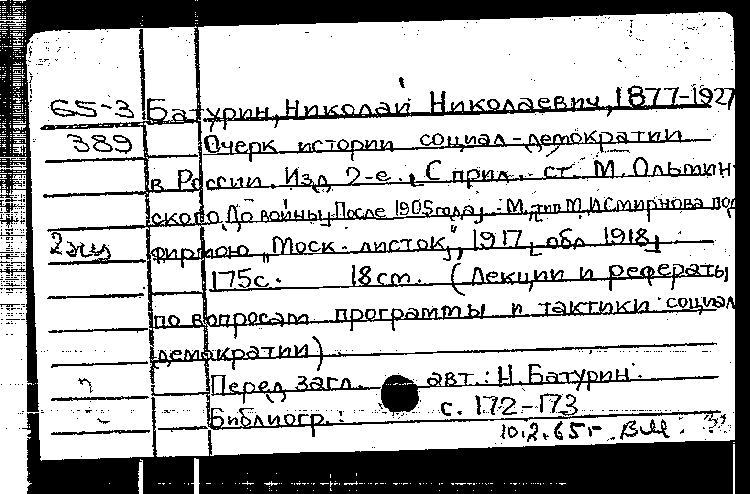 65-3 Батурин, Николай Николаевич, 1877-1927
389 Очерк истории социал-демократии
в России. Изд. 2-е. С прил. ст. М. Ольмин-
ского "До войны. После 1905 года". М., тип. М.И. Смирнова под
2 экз фирмою "Моск. листок", 1917 [обл. 1918]
175 с. 18 см. (Лекции и рефераты
по вопросам программы и тактики социал
демократии)
Перед загл. авт.: Н. Батурин.
Библиогр.: с. 172-173
10.2.65г.